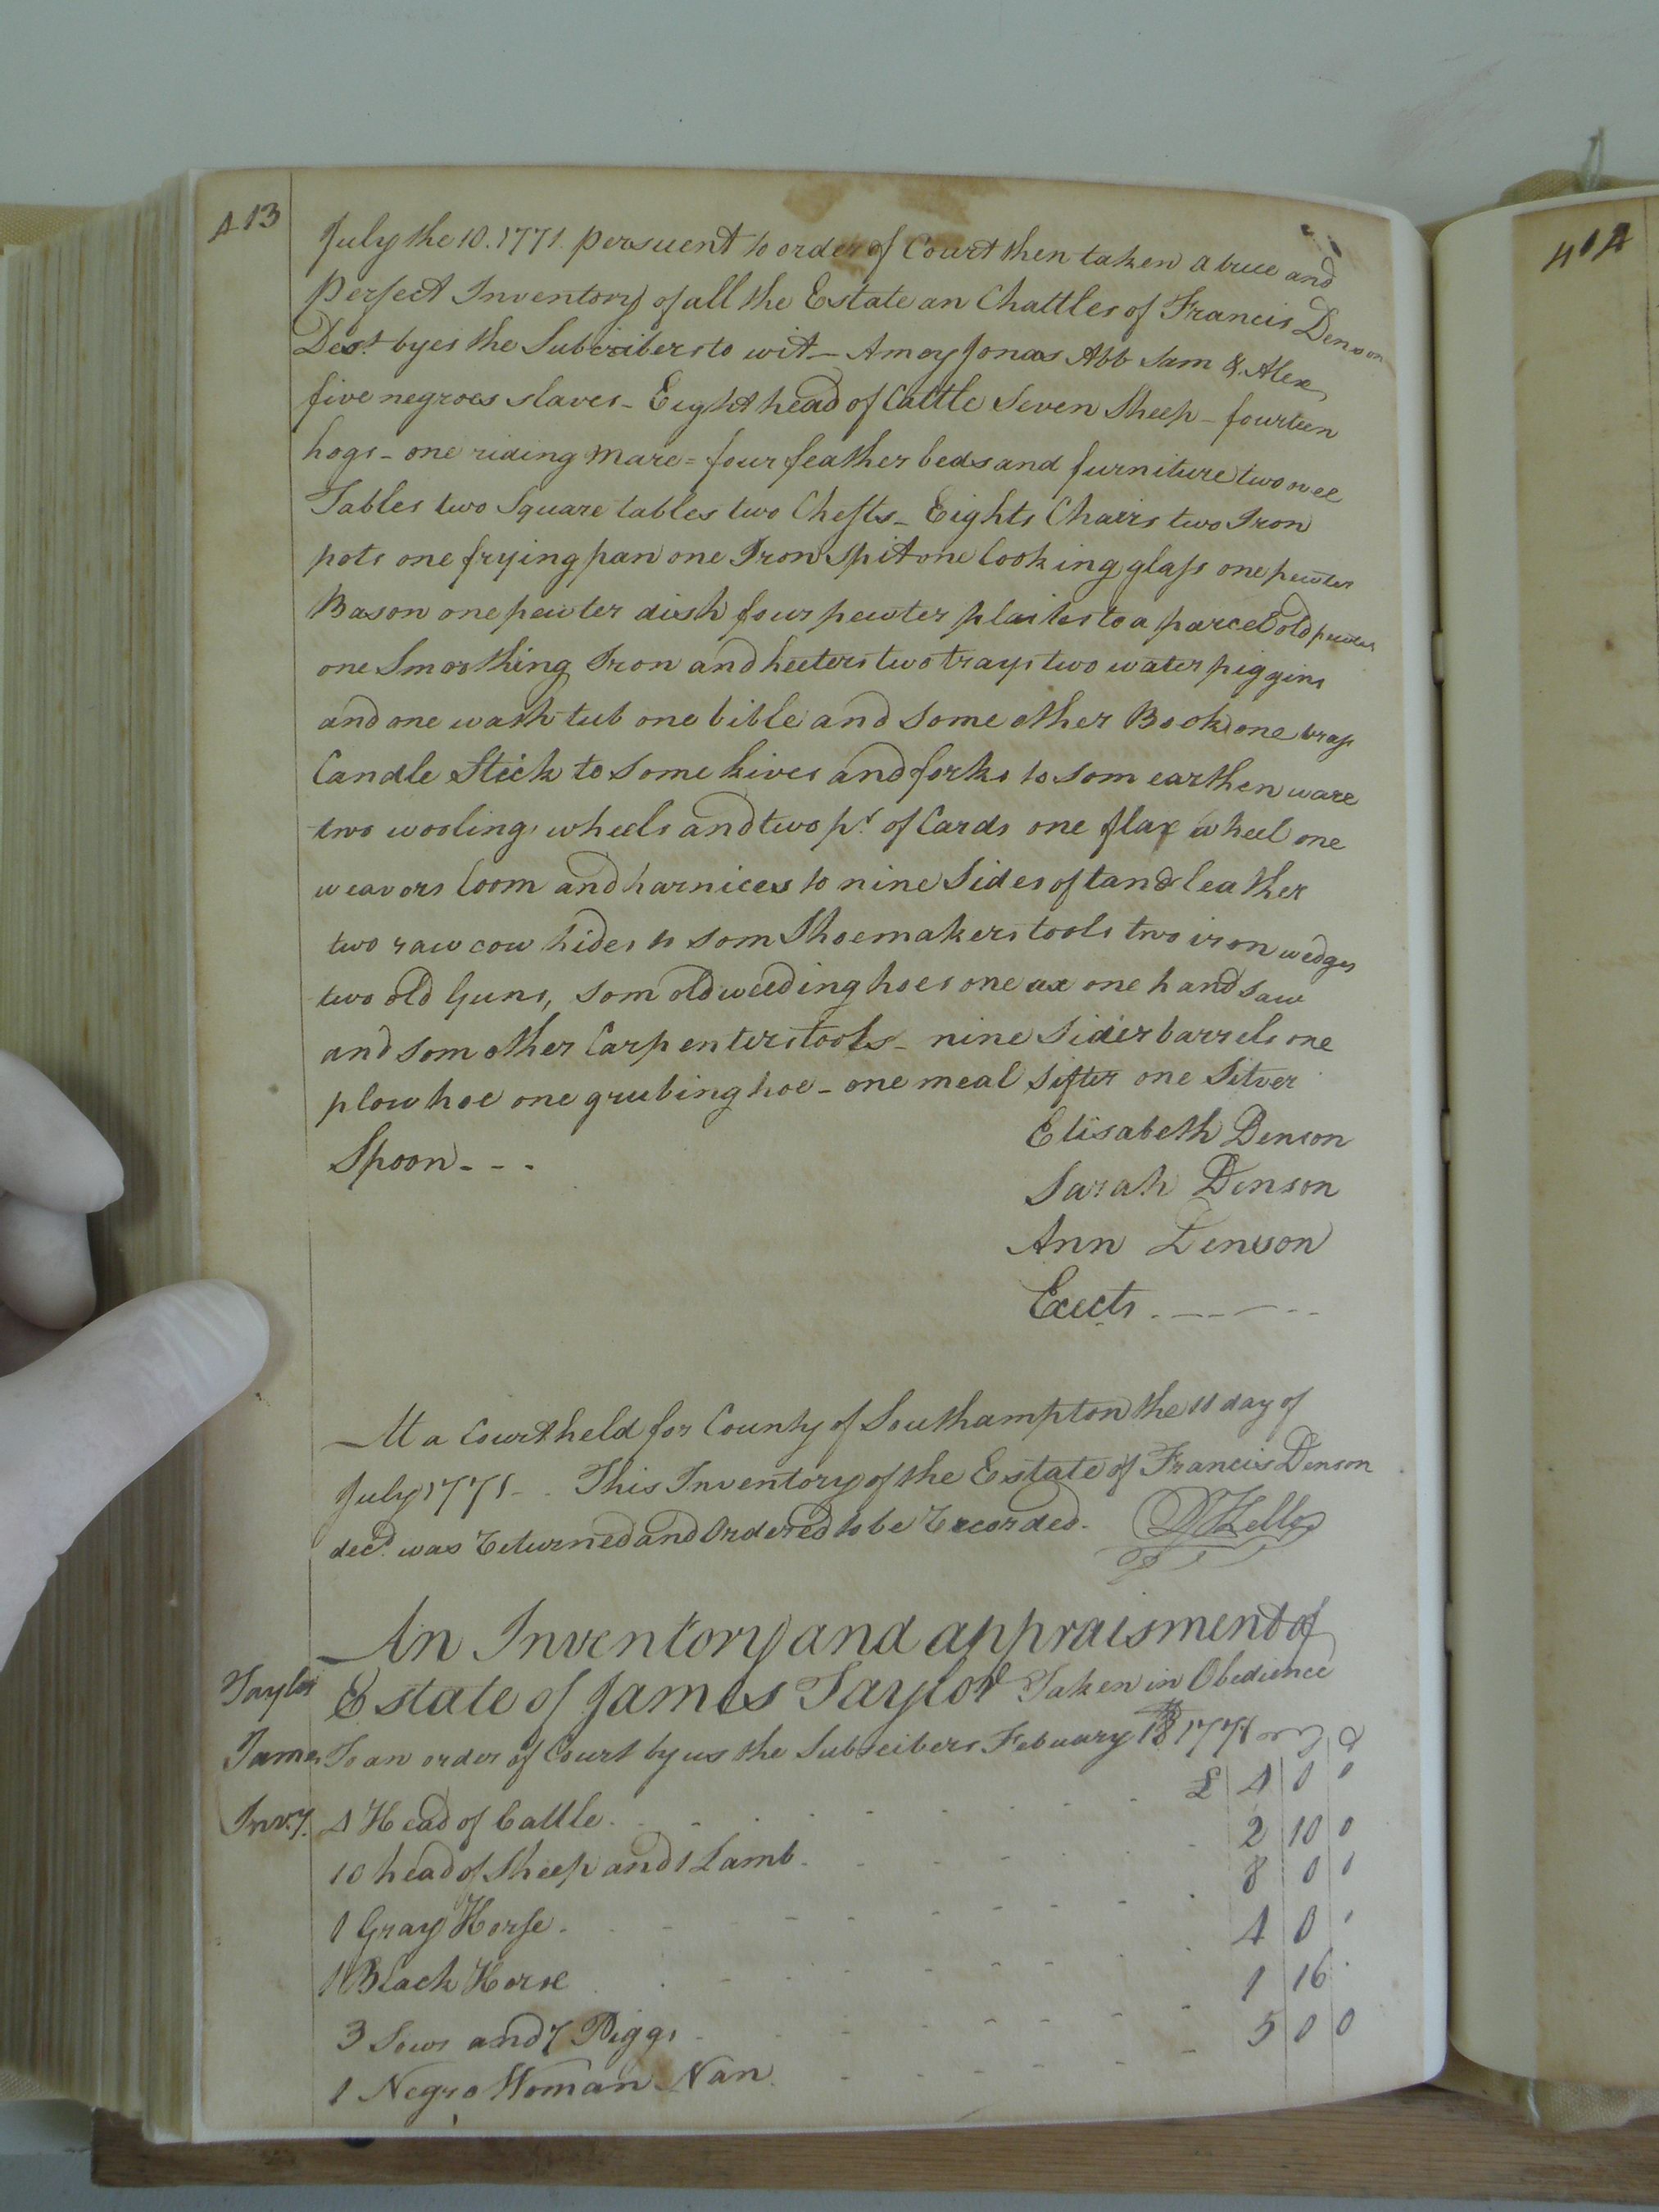 413
July the 10. 1771 persuent to order of Court then taken a true and
Perfect Inventory of all the Estate an Chattles of Francis Denson
Desd. byes the Subcribers to wit - Amey Jonas Abb Sam & Alex
five negroes slaves - Eight head of Cattle Seven Sheep - fourteen
hogs - one riding mare = four feather beds and furniture two ovel
Tables two Square tables two Chests - Eights Chairs two Iron
pots one frying pan one Iron Spit one looking glass one pewter
Bason one pewter dish four pewter plaites to a parcel old pewter
one Smoothing Iron and heeters two trays two water piggins
and one wash tub one bible and some other Book one brass
Candle Stick to some kives and forks to som earthen ware
two wooling wheels and two pr. of Cards one flax wheel one
weavors loom and harnices to nine Sides of tand leather
two raw cow hides to som Shoemakers tools two iron wedges
two old Guns, som old weeding hoes one ax one hand saw
and som other Carpenters tools - nine Sider barrels one
plow hoe one grubing hoe - one meal sifter one Silver
Spoon - - -
Elisabeth Denson
Sarah Denson
Ann Denson
Exects
At a Court held for County of Southampton the 11 day of
July 1771 - . This Inventory of the Estate of Francis Denson
decd. was Returned and Ordered to be Recorded.
An Inventory and appraisment of
Taylor
Estate of James Taylor Taken in Obedience
James
To an order of Court by us the Subscibers Febuary 1771
Invy.
4 Head of Cattle. £ 4 0 0
10 head of Sheep and 1 Lamb. 2 10 0
1 Gray Horse. 8 0 0
1 Black Horse 4 0
3 Sows and 7 Piggs 1 16
1 Negro Woman Nan 5 0 0
414